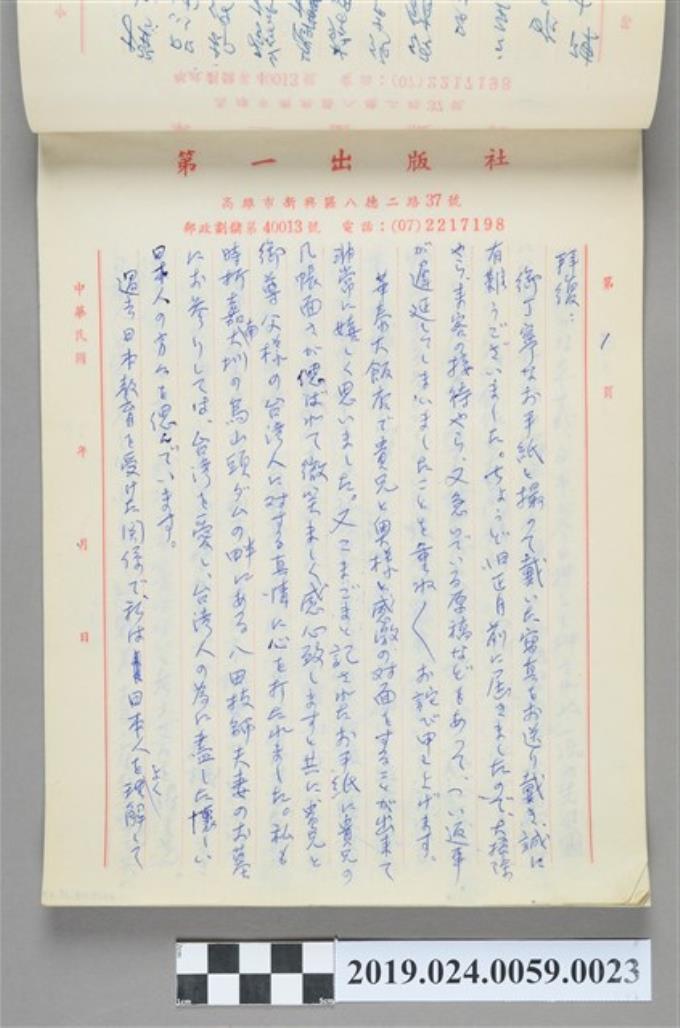 第一出版社
高雄市新興區八德二路37號
郵政劃儲第40013號 電話:(07)2217198
第 1 頁
拝復：
御丁寧なお手紙と撮って戴いた寫真をお送り戴き、誠に
有難うございました。ちょうど旧正月前に届きましたので、大掃除
やら、来客の接待やら、又急いでいる原稿などもあって、つい返事
が遅延してしまいましたことを重ね〱お詫び申し上げます。
華泰大飯店で貴兄と奥様と感激の対面をすることが出来て
非常に嬉しく思いました。又こまごまと記されたお手紙に貴兄の
几帳面さが偲ばれて微笑ましく感心致しますと共に貴兄と
御尊父様の台湾人に対する真情に心を打たれました。私も
時折嘉南大圳の烏山頭ダムの畔にある八田技師夫妻のお墓
にお参りしては、台湾を愛し、台湾人の為に盡した懐しい
日本人の方々を偲んでいます。
過去日本教育を受けた関係で、私は日本人をよく理解して
中華民國 年 月 日
2019.024.0059.0023